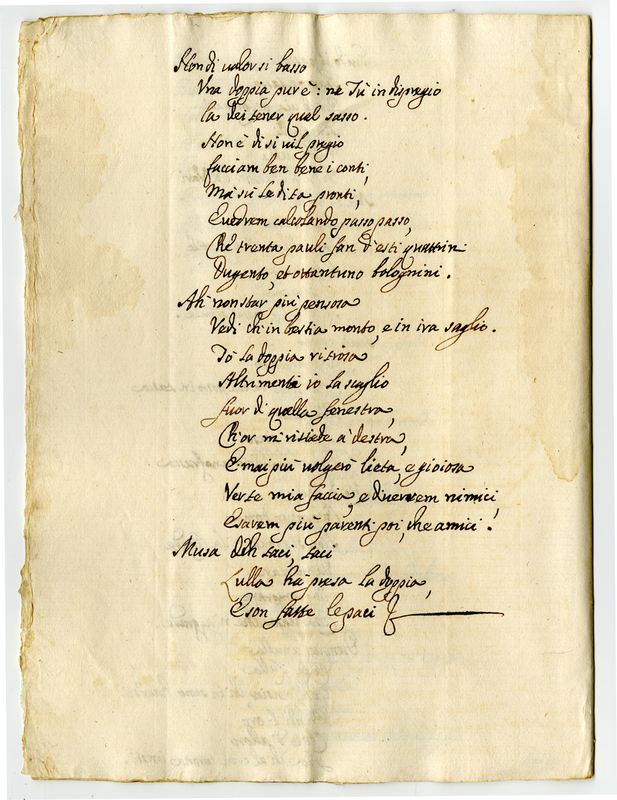 Non di valor si basso
Vna doppia pur è: ne Tù in dispregio
la dei tener quel sasso.
Non è di si vil pregio
facciam ben bene i conti,
Mà sù le dita pronti,
E vedrem calcolando passo passo,
Che trenta pauli fan d'esti quattrin
Dugento, et ottantuno bolognini.
Ah non star più pensosa
Vedi ch'in bestia monto, e in ira saglio.
Tò la doppia ritrosa
Altrimenti io la scaglio
fuor di quella fenestra,
Ch'or mi risiede a destra,
E mai più volgerò lieta, e gioiosa
Verte mia faccia, e diverrem nimici,
E sarem più parenti poi, che amici.
Musa deh taci, taci
Lulla hà presa la doppia,
E son fatte le paci